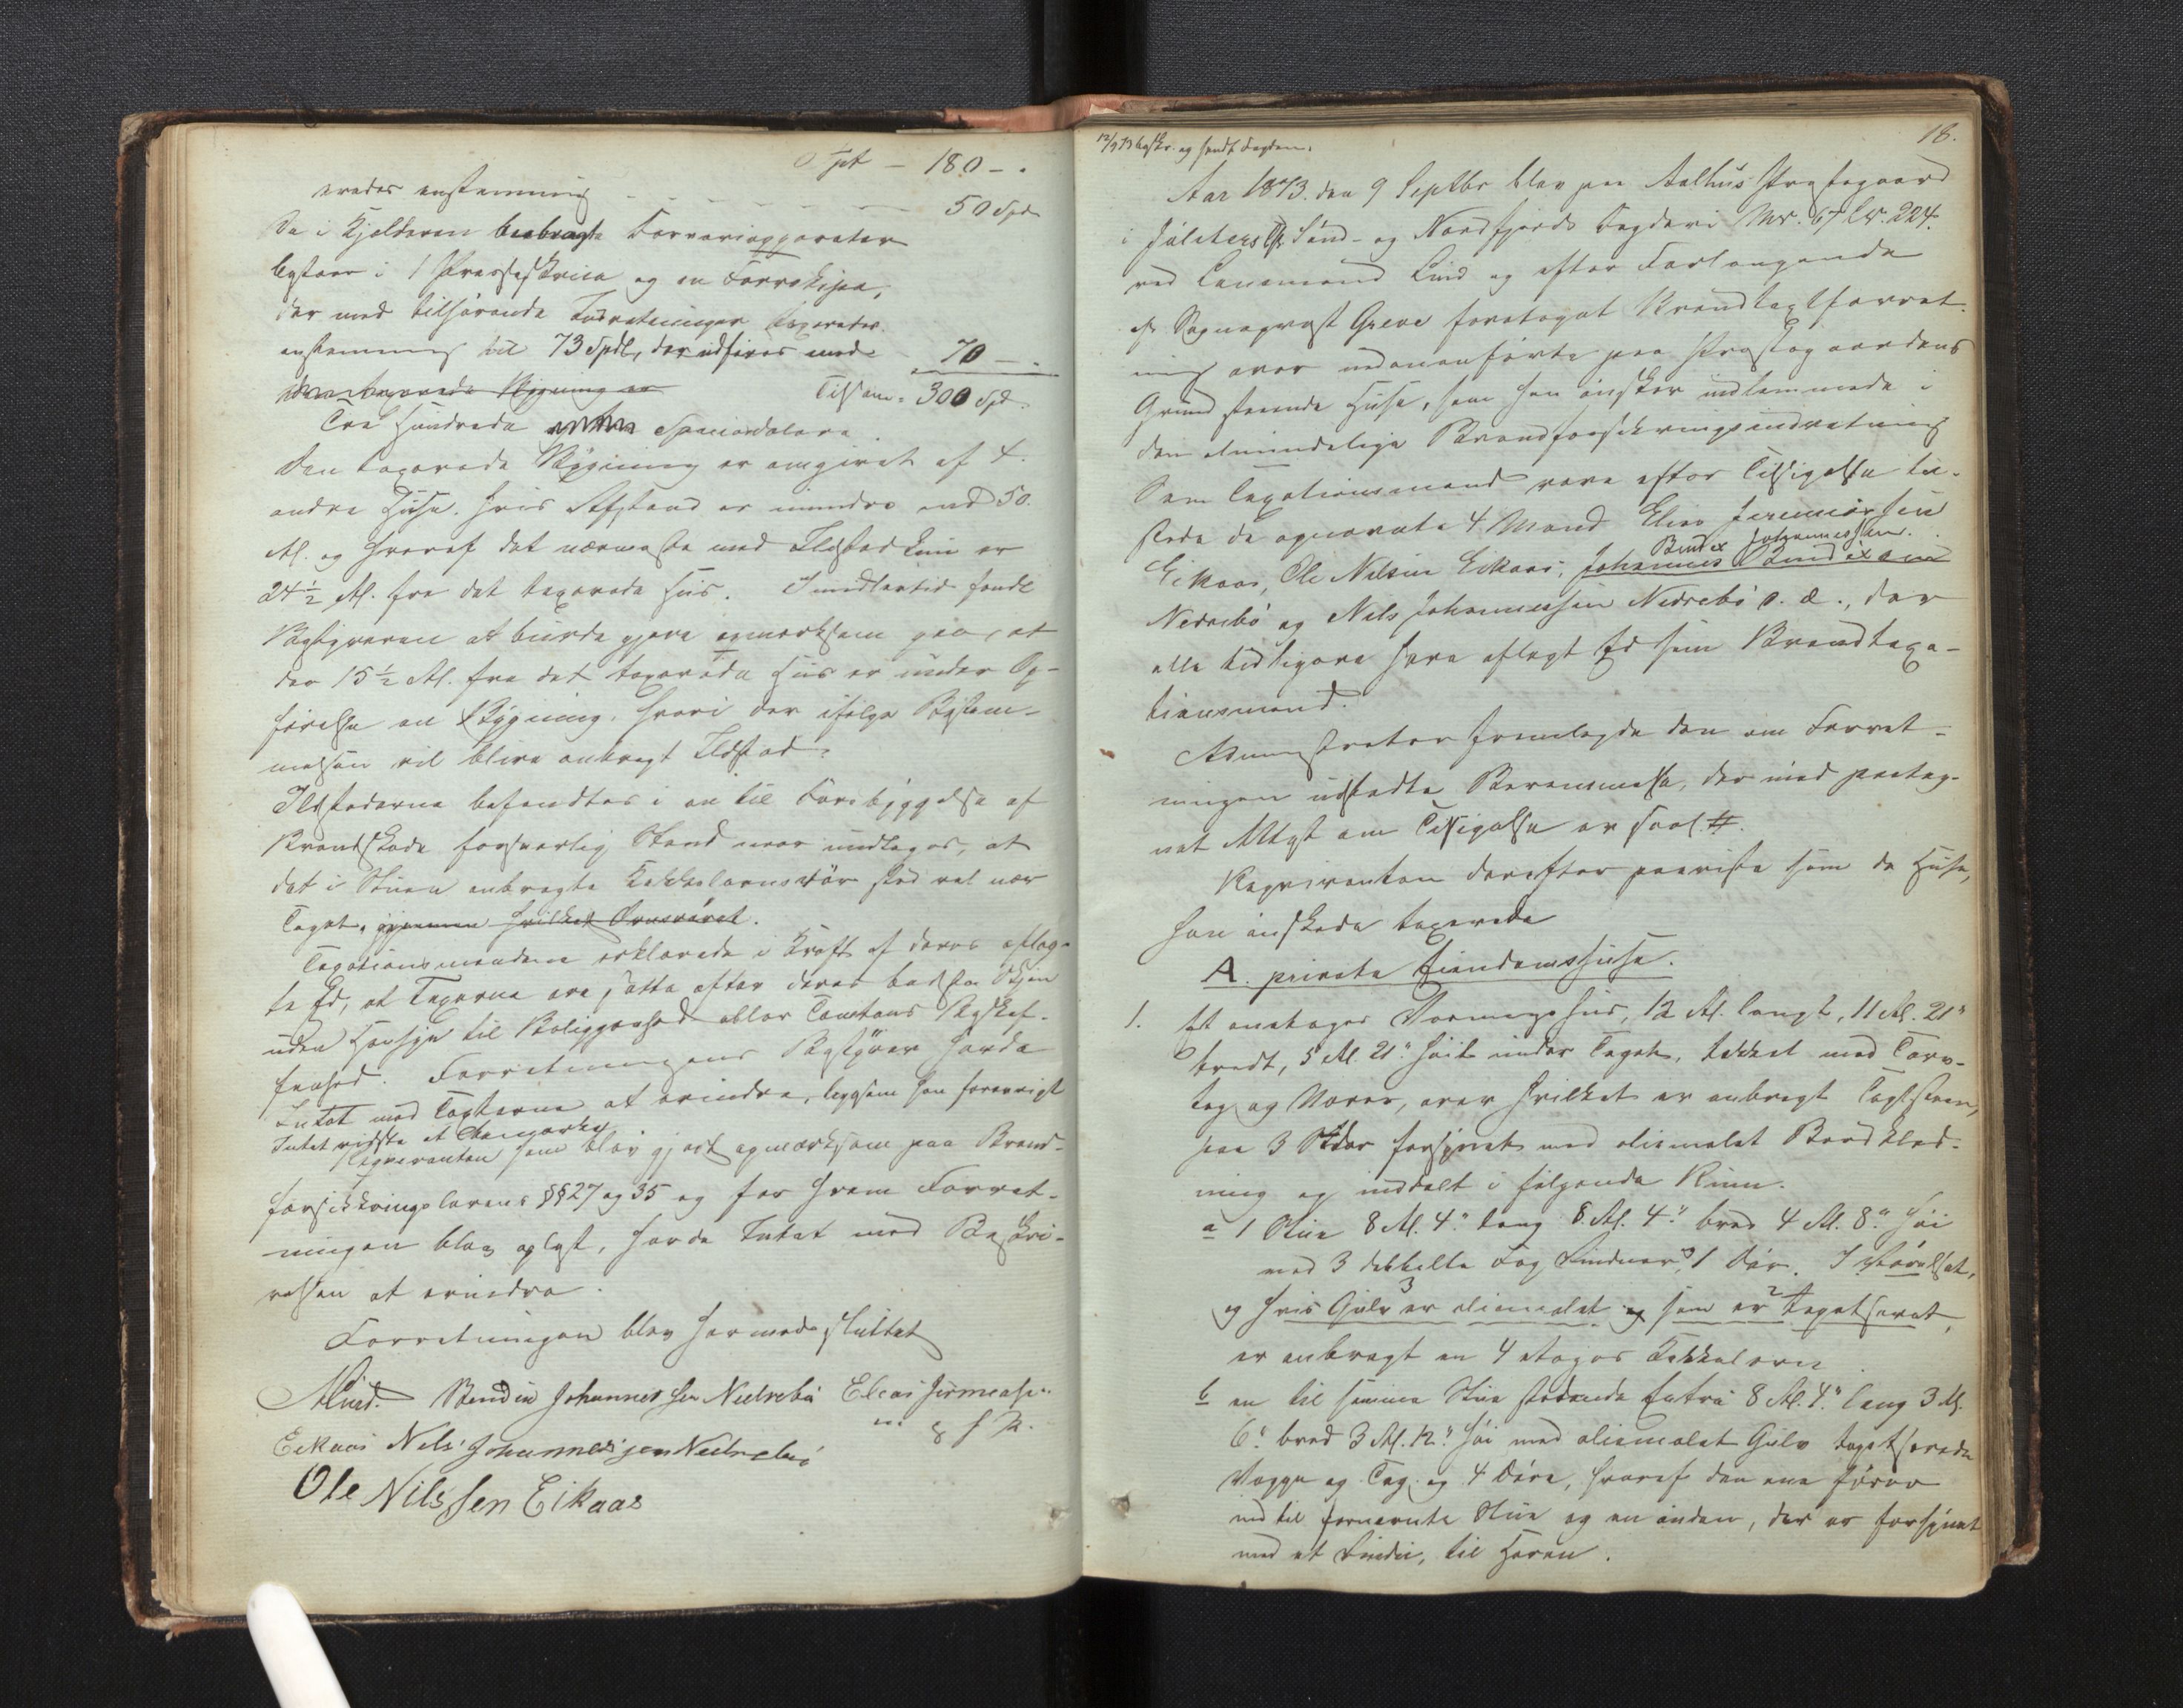 Tpt – 180 – .
erades enstemmig – – – – – 50 Spd
De i Kjelderen beebragte Farveriapparater
bestaar i 1 Presseskrue og en Farvekjel,
der med tilhørende Indretninger taxerades
enstemmig til 73 Spdl, der udføres med 70 – .
den taxerede Bygning er Tilsam = 300 Spd.
Tre Hundrede Speciedalere
Den taxerede Bygning er omgivet af 4
andre Huse, hvis Afstand er mindre end 50
Al. og hvoraf det nærmeste med Ildsted kun er
24 ½ Al. fra det taxerede Hus. Imidlertid fandt
Bestyreren at burde gjøre opmærksom paa, at
der 15 ½ Al. fra det taxerede Hus er under Op-
førelse en Bygning, hvori der ifølge Bestem-
melsen vil blive anbragt Ildsted.
Ildstederne befandtes i en til Forebyggelse af
Brandskade forsvarlig Stand naar undtages, at
det i Stuen anbragte Kakkelovnsrør stod vel nær
Taget, gjennem hvilket Ovnsrøret.
Taxationsmændene erklærede i Kraft af deres aflag-
te Ed, at Taxterne ere satte efter deres bedste Skjøn
uden Hensyn til Beliggenhed eller Tomtens Beskaf-
fenhed. Forretningens Bestyrer havde
Intet mod Taxterne at erindre, ligesom han forøvrigt
Intet vidste at bemærke
Reqvirenten som blev gjort opmærksom paa Brand-
forsikkringslovens §§ 27 og 35 og for hvem Forret-
ningen blev oplæst, havde Intet mod Beskri-
velsen at erindre.
Forretningen blev hermed sluttet
ALind. Bendix Johannes sen Nedrebø Elias Jermeasen
Eikaas Nels Johannessen Nedrebø m f P.
Ole Nils sen Eikaas
12/9 73 beskr. og sendt Fogden.
18.
Aar 1873 den 9 Septbr blev paa Aalhus Præstegaard
i Jølsters Sønd- og Nordfjords Fogderi Mr. 67 Lr. 224.
ved Lensmand Lind og efter Forlangende
af Sogneprest Greve foretaget Brandtaxtforret-
ning over nedenanførte paa Præstegaardens
Grund staaende Huse, som han ønsker indlemmede i
den almindelige Brandforsikringsindretning
Som Taxationsmænd vare efter Tilsigelse til-
stede de opnævnte 4 Mænd Elias Jeremiassen
Bendix Johannessen.
Eikaas, Ole Nilsen Eikaas, Johannes Bendixsen
Nedrebø og Nels Johannessen Nedrebø d. æ., der
alle tidligere have aflagt Ed som Brandtaxa-
tionsmænd.
Administrator fremlagde den om Forret-
ningen udstedte Berammelse, der med paateg-
net Attest om Tilsigelse er saal. #.
Reqvirenten derefter paaviste som de Huse,
han ønskede taxerede
A. private Eiendomshuse.
1. Et enetages Vaaningshus, 12 Al. langt, 11 Al. 21"
bredt, 5 Al. 21" høit under Taget, tækket med Torv-
tag og Næver, over hvilket er anbragt Taglsteen,
paa 3 Sider forsynet med oliemalet Bordklæd-
ning og inddelt i følgende Rum.
a 1 Stue 8 Al. 4" lang 8 Al. 4" bred 4 Al. 8" høi
med 3 dobbelte Fag Vinduer, 1 Dør. I Værelset,
og hvis Gulv 3 er oliemalet og som er 2 tapetseret,
er anbragt en 4 etages Kakkelovn
b en til samme Stue stødende Entré 8 Al. 4" lang 3 Al.
6" bred 3 Al. 12" høi med oliemalet Gulv tapetserede
Vægge og Tag og 4 Døre, hvoraf den ene fører
ind til førnævnte Stue og en anden, der er forsynet
med et Vindu, til Haven.